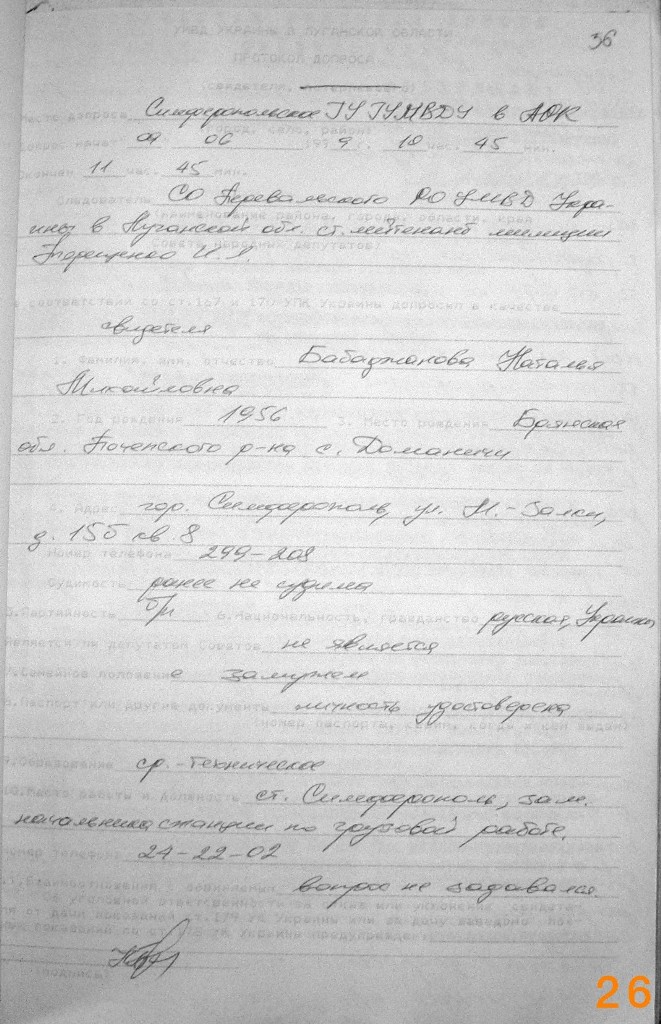 36
УМВД УКРАИНЫ В ЛУГАНСКОЙ ОБЛАСТИ
ПРОТОКОЛ ДОПРОСА
(свидетеля, потерпевшего)
Место допроса Симферопольское ГУ ГУМВДУ в АРК
(город, село, район)
Допрос начат 09 06 199 9 г. 10 час. 45 мин.
Окончен 11 час. 45 мин.
Следователь СО Перевальского РО УМВД Укра-
(наименование района, города, области, края
ины в Луганской обл. ст. лейтенант милиции
Совета народных депутатов)
Терещенко И. Я.
в соответствии со ст.167 и 170 УПК Украины допросил в качестве
свидетеля
1. Фамилия, имя, отчество Бабаджанова Наталья
Михайловна
2. Год рождения 1956 3. Место рождения Брянская
обл. Почепского р-на с. Доманичи
4. Адрес гор. Симферополь, ул. М.-Залки,
д. 15б кв. 8
Номер телефона 299-208
Судимость ранее не судима
5.Партийность б/п 6.Национальность, гражданство русская, Украины
Является ли депутатом Советов не является
7.Семейное положение замужем
8.Паспорт или другие документы личность удостоверена
(номер паспорта, серия, когда и кем выдан)
9.Образование ср.-техническое
10.Место работы и должность ст. Симферополь, зам.
начальника станции по грузовой работе.
Номер телефона 24-22-02
11.Взаимоотношения с обвиняемым вопрос не задавался.
Об уголовной ответственности за отказ или уклонение свидете-
ля от дачи показаний ст.179 УК Украины или за дачу заведомо лож-
ных показаний по ст.178 УК Украины предупрежден
(подпись)
26